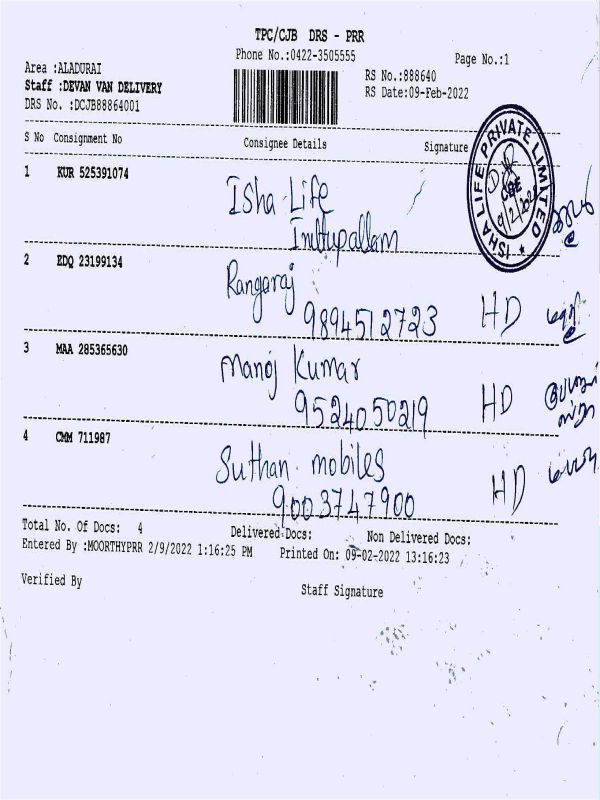 TPC/CJB DRS - PRR
Phone No.:0422-3505555
Page No.:1
Area :ALADURAI
RS No.:888640
Staff :DEVAN VAN DELIVERY
RS Date:09-Feb-2022
DRS No. :DCJB88864001
S No Consignment No Consignee Details Signature
1 KUR 525391074
Isha Life
Iruttupallam
ISHA LIFE PRIVATE LIMITED
CBE
2 EDQ 23199134
Rangaraj
9894512723 HD
3 MAA 285365630
Manoj Kumar
9524050219 HD
4 CMM 711987
Suthan mobiles
9003747900 HD
Total No. Of Docs: 4 Delivered Docs: Non Delivered Docs:
Entered By :MOORTHYPRR 2/9/2022 1:16:25 PM Printed On: 09-02-2022 13:16:23
Verified By
Staff Signature